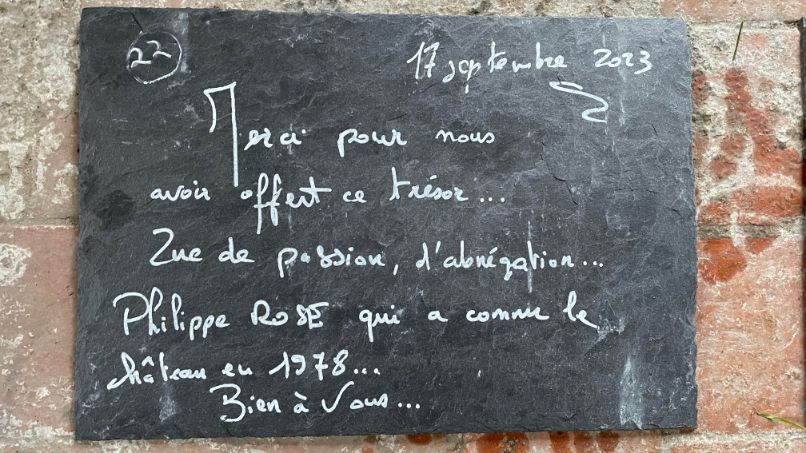 22
17 septembre 2023
Merci pour nous
avoir offert ce trésor...
Que de passion, d'abnégation...
Philippe ROSE qui a connu le
château en 1978...
Bien à Vous...